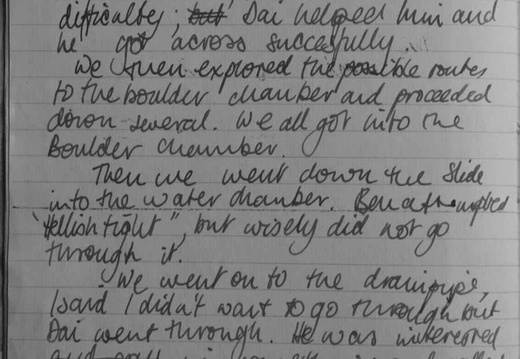 difficulty ; but Dai helped him and
he got across succesfully.
We then explored the possible routes
to the boulder chamber and proceeded
down several. We all got into the
Boulder chamber.
Then we went down the Slide
into the water chamber. Ben attempted
"Hellish tight", but wisely did not go
through it.
We went on to the drainpipe,
I said I didn't want to go through but
Dai went through. He was interested
and